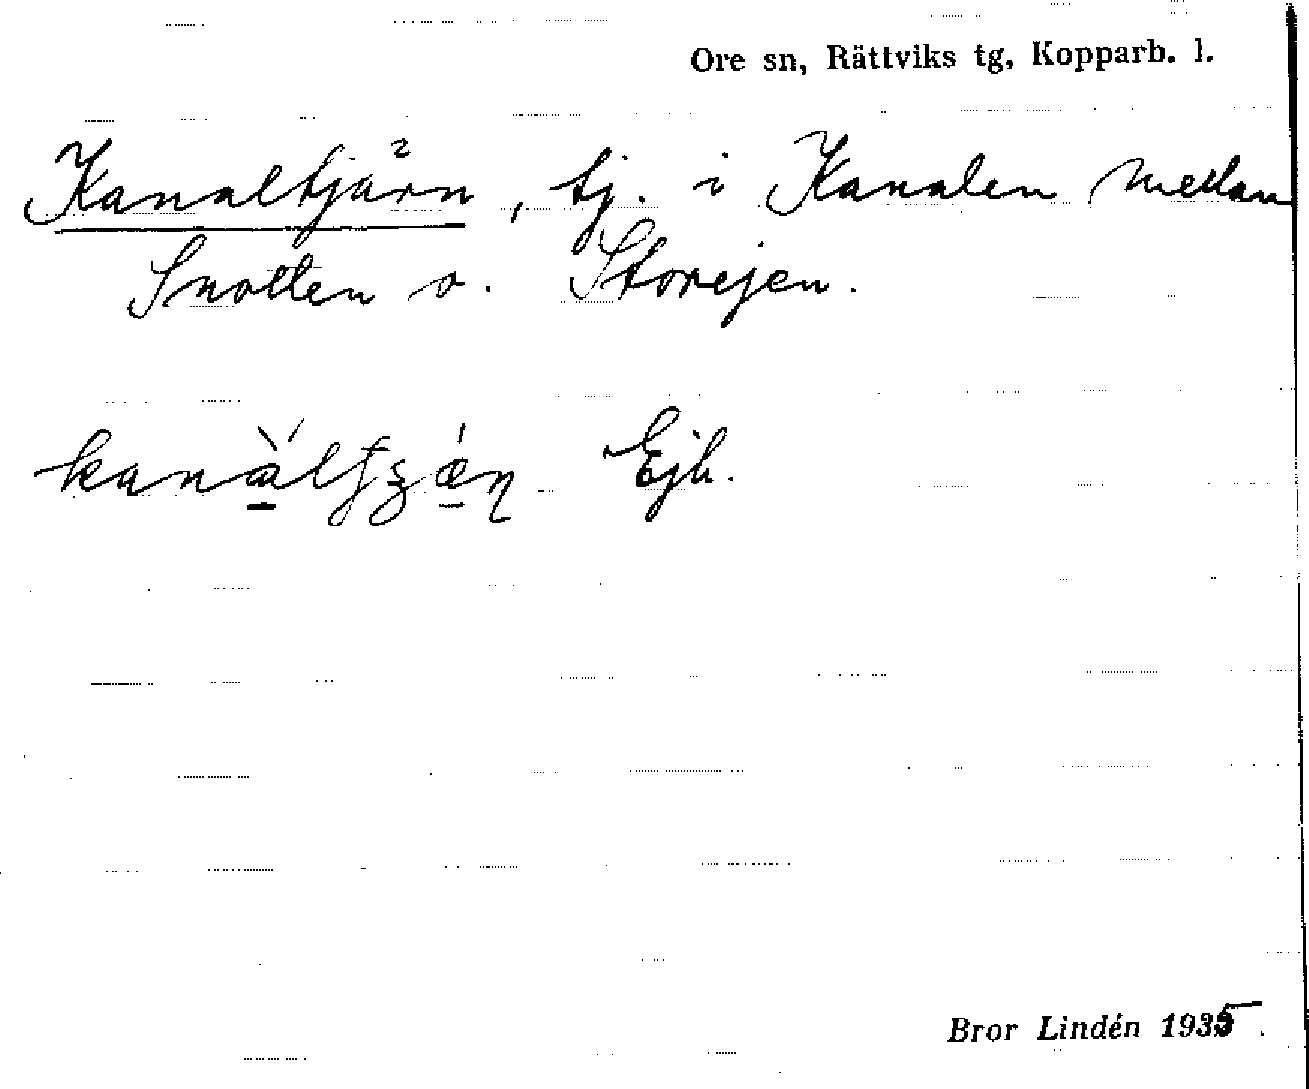 Ore sn, Rättviks tg, Kopparb. l.
Kanaltjärn, tj. i Kanalen mellan
Snotten o. Storejen.
Ejh.
Bror Lindén 1935.